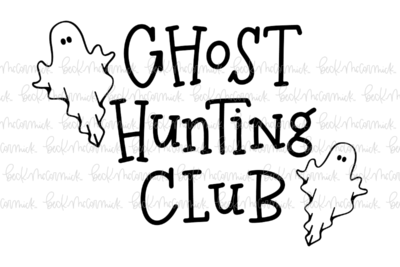 GHoST
HunTing
CLuB